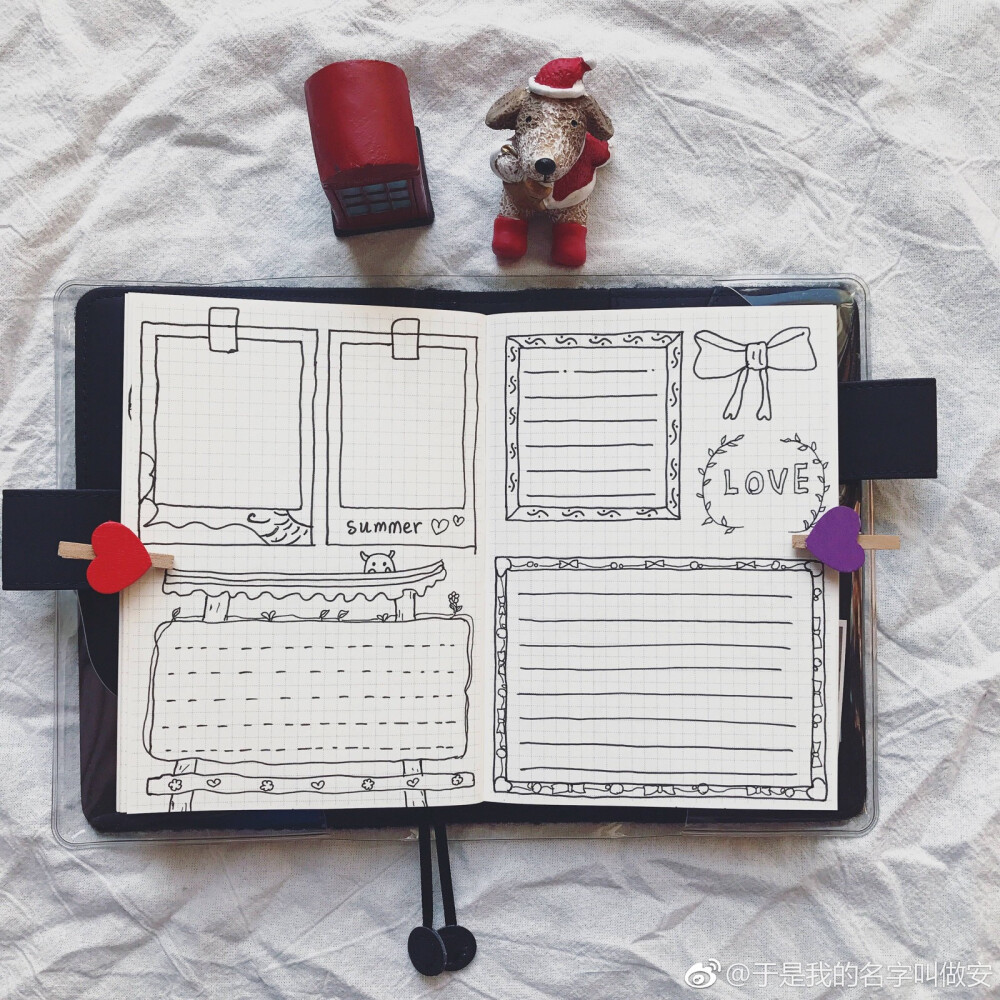 summer
LOVE
@于是我的名字叫做安